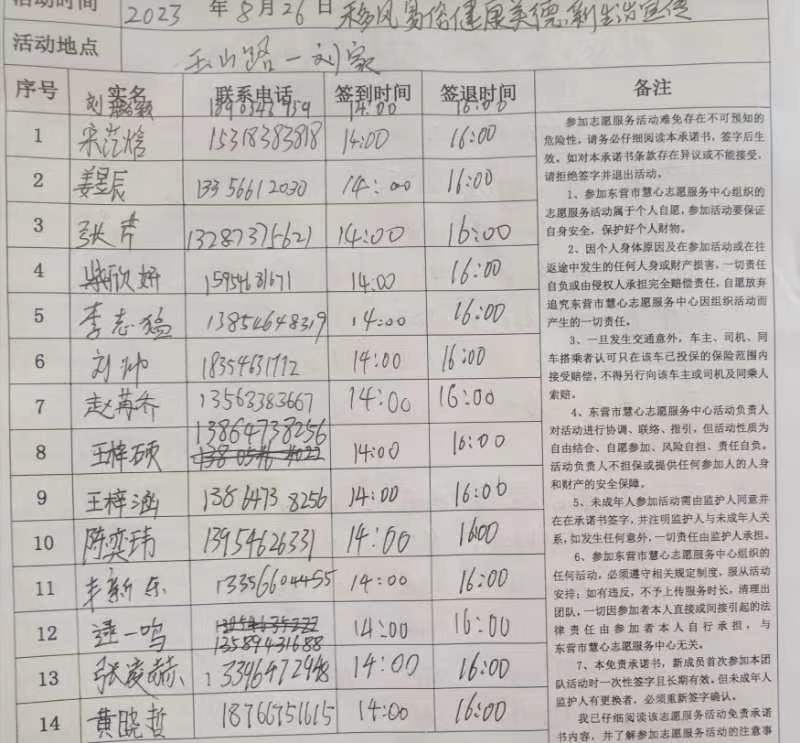 活动时间 2023 年 8 月 26 日 移风易俗健康美德新生活宣传
活动地点 玉山路一刘家
序号 实名 联系电话 签到时间 签退时间 备注
刘 14:00 16:00
1 宋 15318383818 14:00 16:00
2 姜昱辰 13356612030 14:00 16:00
3 张芹 13287375621 14:00 16:00
4 柴欣妍 15954631671 14:00 16:00
5 李志猛 13854648319 14:00 16:00
6 刘帅 18354631712 14:00 16:00
7 赵苒乔 13563383667 14:00 16:00
13864738256
8 王梓硕 14:00 16:00
9 王梓涵 13864738256 14:00 16:00
10 陈奕玮 13954626331 14:00 16:00
11 新乐 13356604455 14:00 16:00
12 一鸣 13589431688 14:00 16:00
13 张凌赫 13396472948 14:00 16:00
14 黄晓哲 18766751615 14:00 16:00
参加志愿服务活动难免存在不可预知的
危险性，请务必仔细阅读本承诺书，签字后生
效。如对本承诺书条款存在异议或不能接受，
请拒绝签字并退出活动。
1、参加东营市慧心志愿服务中心组织的
志愿服务活动属于个人自愿，参加活动要保证
自身安全，保护好个人财物。
2、因个人身体原因及在参加活动或在往
返途中发生的任何人身或财产损害，一切责任
自负或由侵权人承担完全赔偿责任，自愿放弃
追究东营市慧心志愿服务中心因组织活动而
产生的一切责任。
3、一旦发生交通意外，车主、司机、同
车搭乘者认可只在该车已投保的保险范围内
接受赔偿，不得另行向该车主或司机及同乘人
索赔。
4、东营市慧心志愿服务中心活动负责人
对活动进行协调、联络、指引，但活动性质为
自由结合、自愿参加、风险自担、责任自负。
活动负责人不担保或提供任何参加人的人身
和财产的安全保障。
5、未成年人参加活动需由监护人同意并
在在承诺书签字，并注明监护人与未成年人关
系，如发生任何意外，一切责任由监护人承担。
6、参加东营市慧心志愿服务中心组织的
任何活动，必须遵守相关规定制度，服从活动
安排；如有违反，不予上传服务时长，清理出
团队，一切因参加者本人直接或间接引起的法
律责任由参加者本人自行承担，与
东营市慧心志愿服务中心无关。
7、本免责承诺书，新成员首次参加本团
队活动时一次性签字且长期有效。但未成年人
监护人有更换者，必须重新签字确认。
我已仔细阅读该志愿服务活动免责承诺
书内容，并了解参加志愿服务活动的注意事